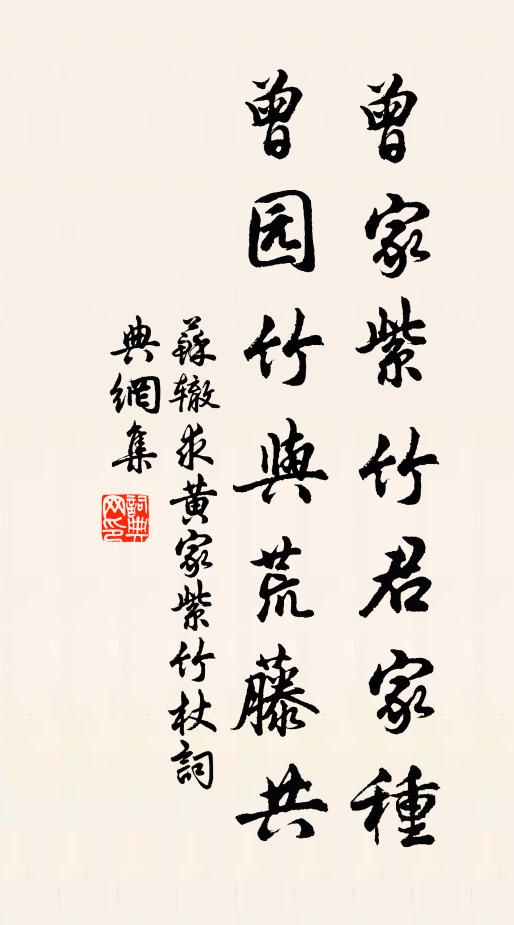 曾家紫竹君家種
曾园竹與荒藤共
蘇辙求黃家紫竹杖詞
典網集
詞典
网印